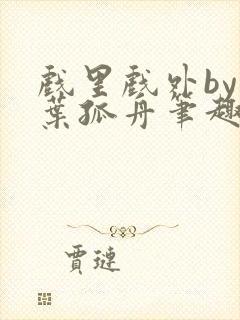 戲里戲外by
葉孤舟筆趣
賈璉